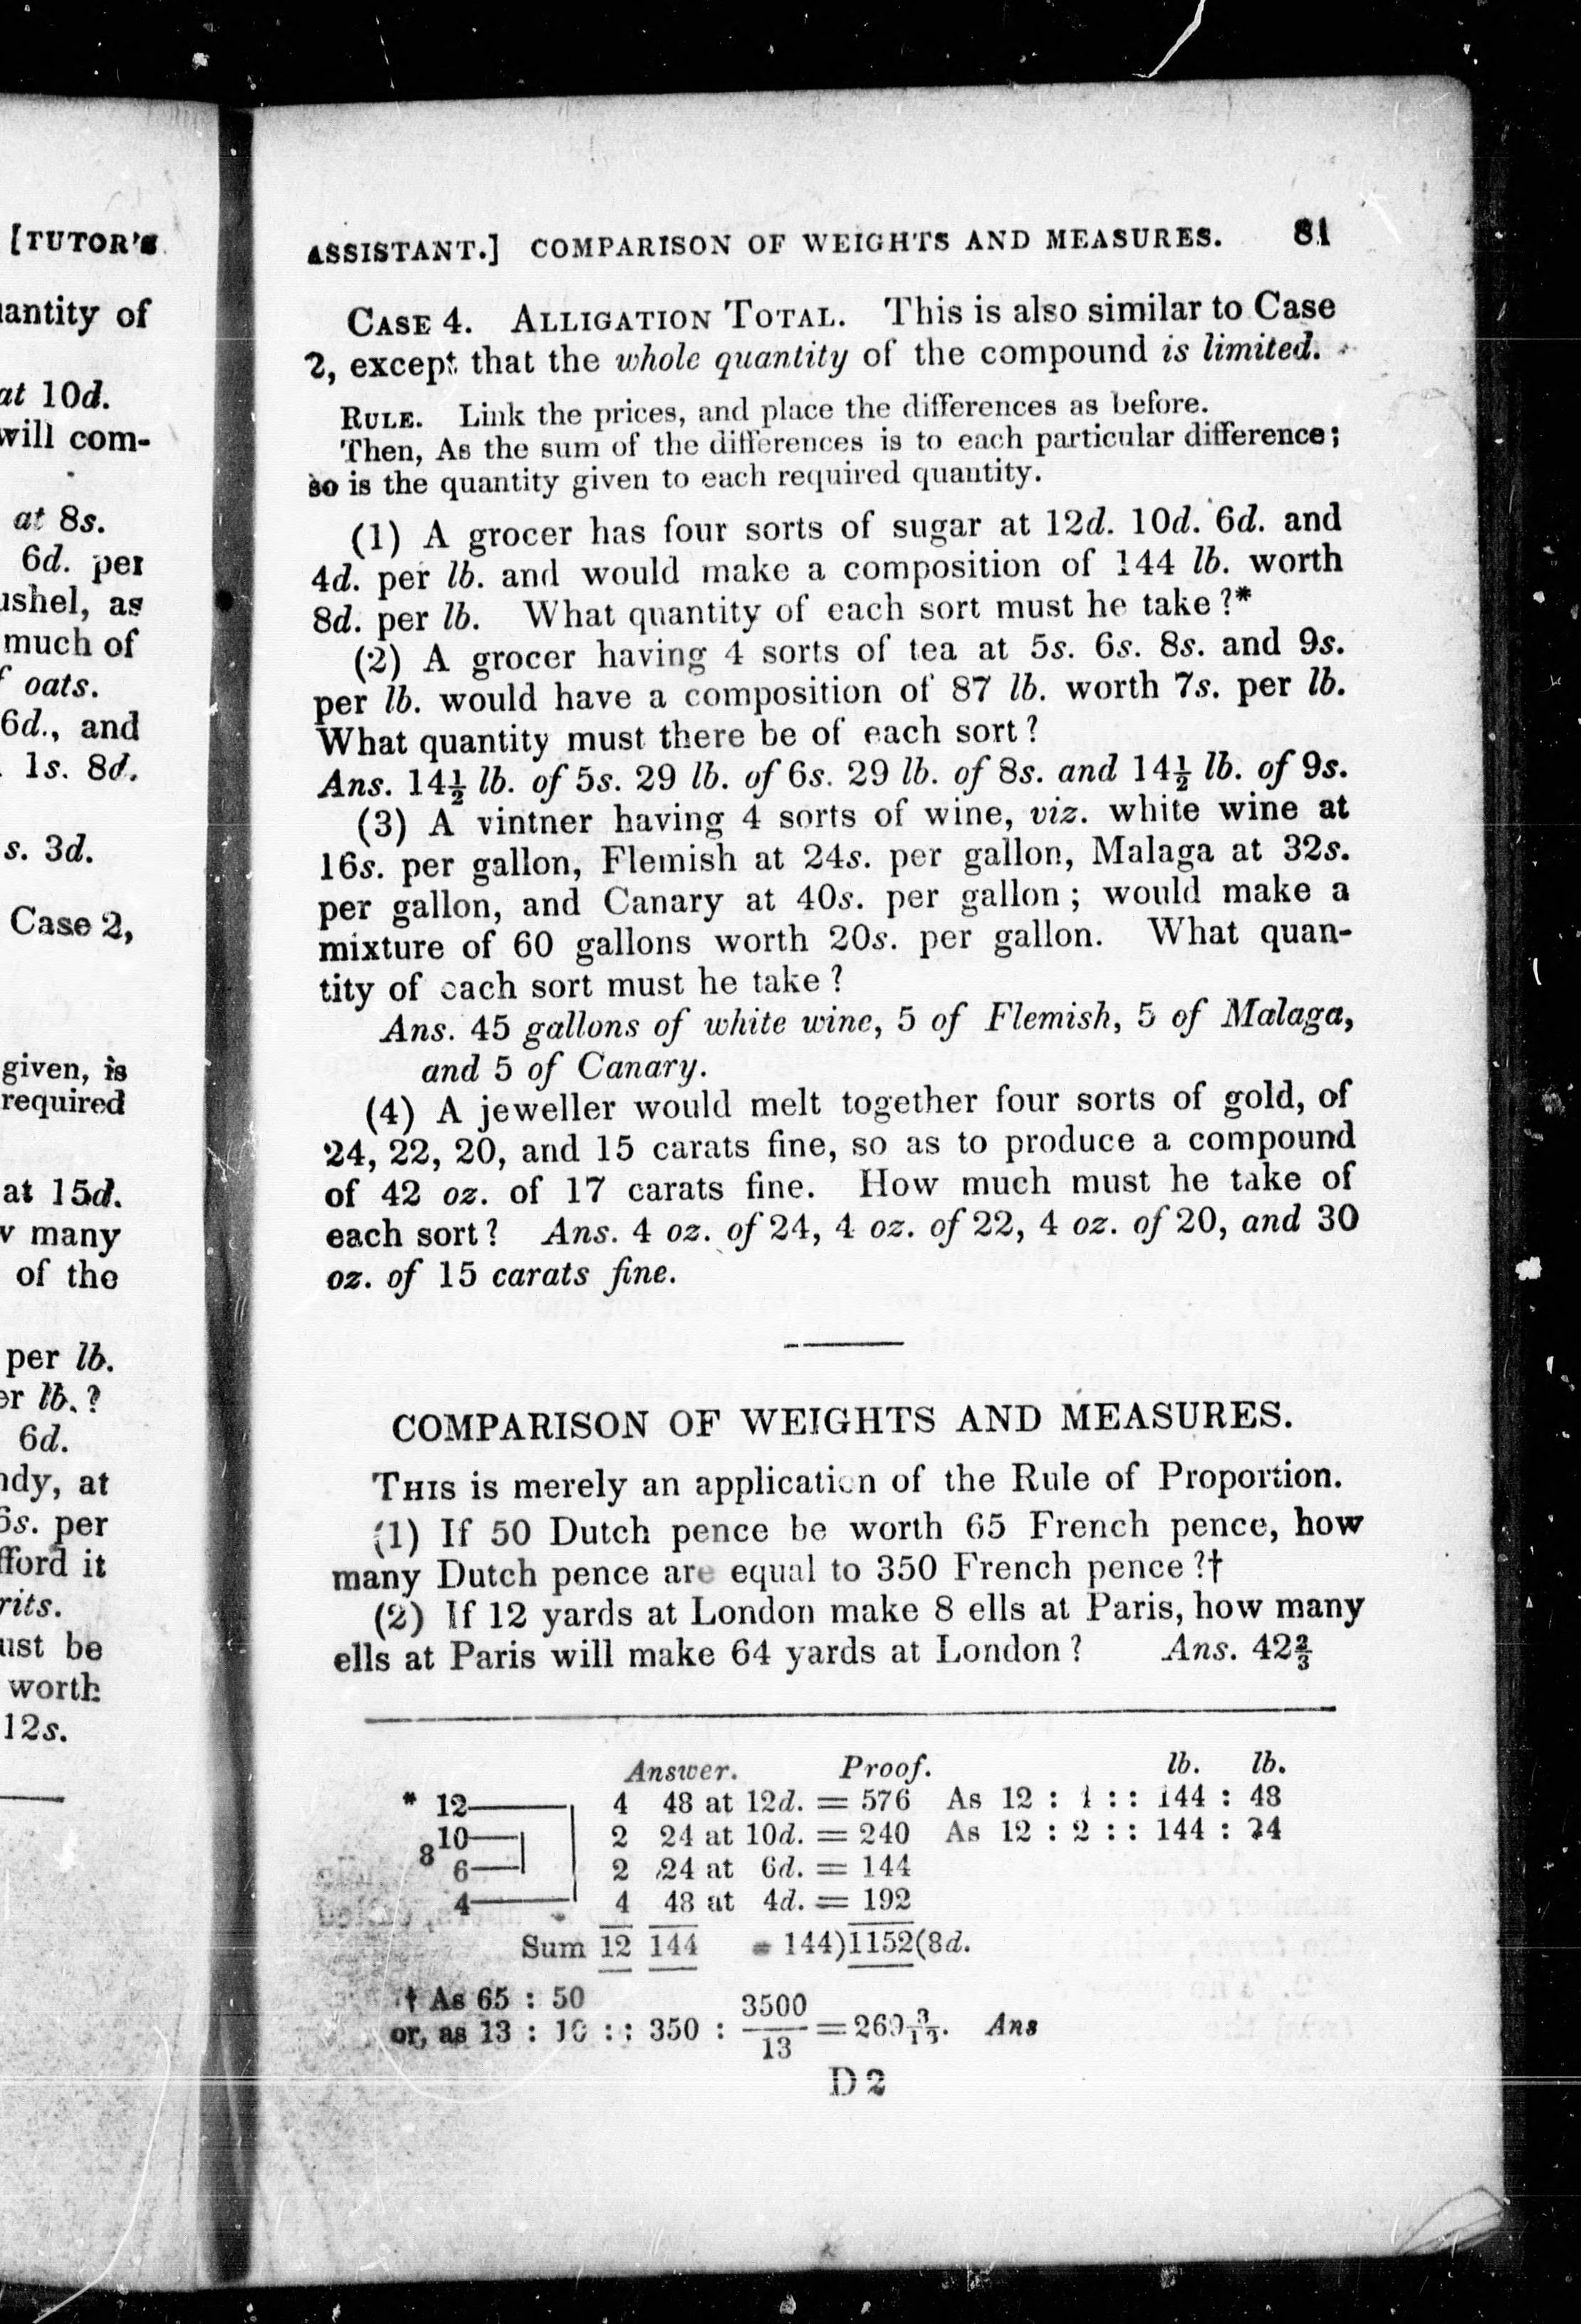 [TUTOR'S
antity of
at 10d.
will com-
at 8s.
6d. per
ushel, as
much of
oats.
6d., and
1s. 8d.
s. 3d.
Case 2,
given, is
required
at 15d.
many
of the
per lb.
lb.?
6d.
at
per
it
ust be
worth
12s.
ASSISTANT.] COMPARISON OF WEIGHTS AND MEASURES. 81
CASE 4. ALLIGATION TOTAL. This is also similar to Case
2, except that the whole quantity of the compound is limited.
RULE. Link the prices, and place the differences as before.
Then, As the sum of the differences is to each particular difference;
so is the quantity given to each required quantity.
(1) A grocer has four sorts of sugar at 12d. 10d. 6d. and
4d. per lb. and would make a composition of 144 lb. worth
8d. per lb. What quantity of each sort must he take?*
(2) A grocer having 4 sorts of tea at 5s. 6s. 8s. and 9s.
per lb. would have a composition of 87 lb. worth 7s. per lb.
What quantity must there be of each sort?
Ans. 14½ lb. of 5s. 29 lb. of 6s. 29 lb. of 8s. and 14½ lb. of 9s.
(3) A vintner having 4 sorts of wine, viz. white wine at
16s. per gallon, Flemish at 24s. per gallon, Malaga at 32s.
per gallon, and Canary at 40s. per gallon; would make a
mixture of 60 gallons worth 20s. per gallon. What quan-
tity of each sort must he take?
Ans. 45 gallons of white wine, 5 of Flemish, 5 of Malaga,
and 5 of Canary.
(4) A jeweller would melt together four sorts of gold, of
24, 22, 20, and 15 carats fine, so as to produce a compound
of 42 oz. of 17 carats fine. How much must he take of
each sort? Ans. 4 oz. of 24, 4 oz. of 22, 4 oz. of 20, and 30
oz. of 15 carats fine.
COMPARISON OF WEIGHTS AND MEASURES.
THIS is merely an application of the Rule of Proportion.
(1) If 50 Dutch pence be worth 65 French pence, how
many Dutch pence are equal to 350 French pence?†
(2) If 12 yards at London make 8 ells at Paris, how many
ells at Paris will make 64 yards at London? Ans. 42⅔
Answer. Proof. lb. lb.
* 12 4 48 at 12d. = 576 As 12 : 4 : : 144 : 48
10 2 24 at 10d. = 240 As 12 : 2 : : 144 : 24
8
6 2 24 at 6d. = 144
4 4 48 at 4d. = 192
Sum 12 144 = 144)1152(8d.
† As 65 : 50
or, as 13 : 10 : : 350 : 3500/13 = 269 3/13. Ans
D 2